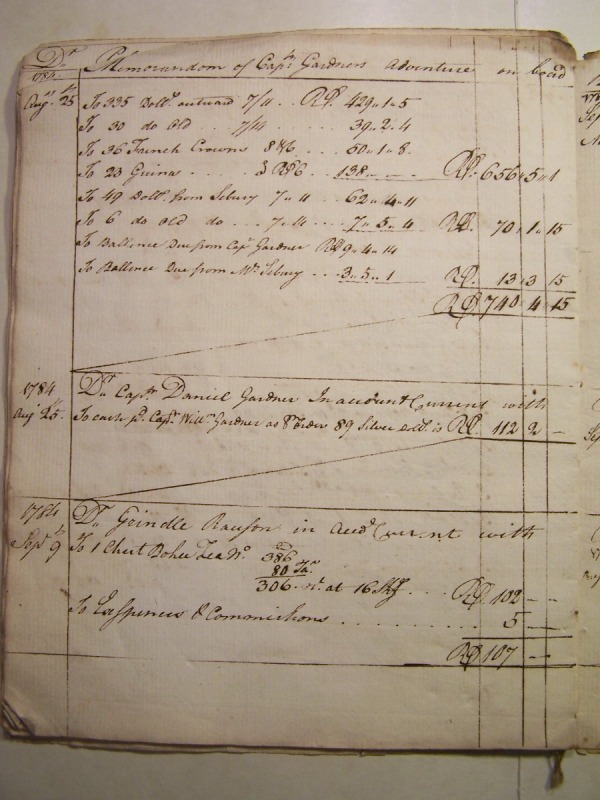 Dr Memorandum of Capt Gardners Adventure on board
1784
Augt 25 To 335 Dolls outward 7/11 .. RD. 429 " 1 " 5
To 30 do Old ... 7/14 ... 39 " 2 " 4
To 36 French Crowns 8 1/6 ... 50 " 1 " 8
To 23 Guinas ... 3 RD6 .. 138 " — " — RD. 656 " 5 " 1
To 49 Dolls from Sebury 7 " 11 .. 62 " 4 " 11
To 6 do Old do ... 7 " 14 ... 7 " 5 " 4 RD. 70 " 1 " 15
To Ballence Due from Capt Gardner RD 9 " 4 " 14
To Ballence Due from Mr Sebury ... 3 " 5 " 1 RD. 13 " 3 15
RD 740 " 4 " 15
1784 Dr Captn Daniel Gardner In account Current with
Augt 25 To cash pd Captn Willm Gardner as pr order 89 Silver Doll. is RD. 112 2 —
1784 Dr Grindle Rawson in Acct Current with
Sept 9 To 1 Chest Bohea Tea No. 386
80 Ta.
306 nt. at 16 Sk ... RD. 102 — —
To Expences & Commissions ............ 5 — —
RD 107 — —